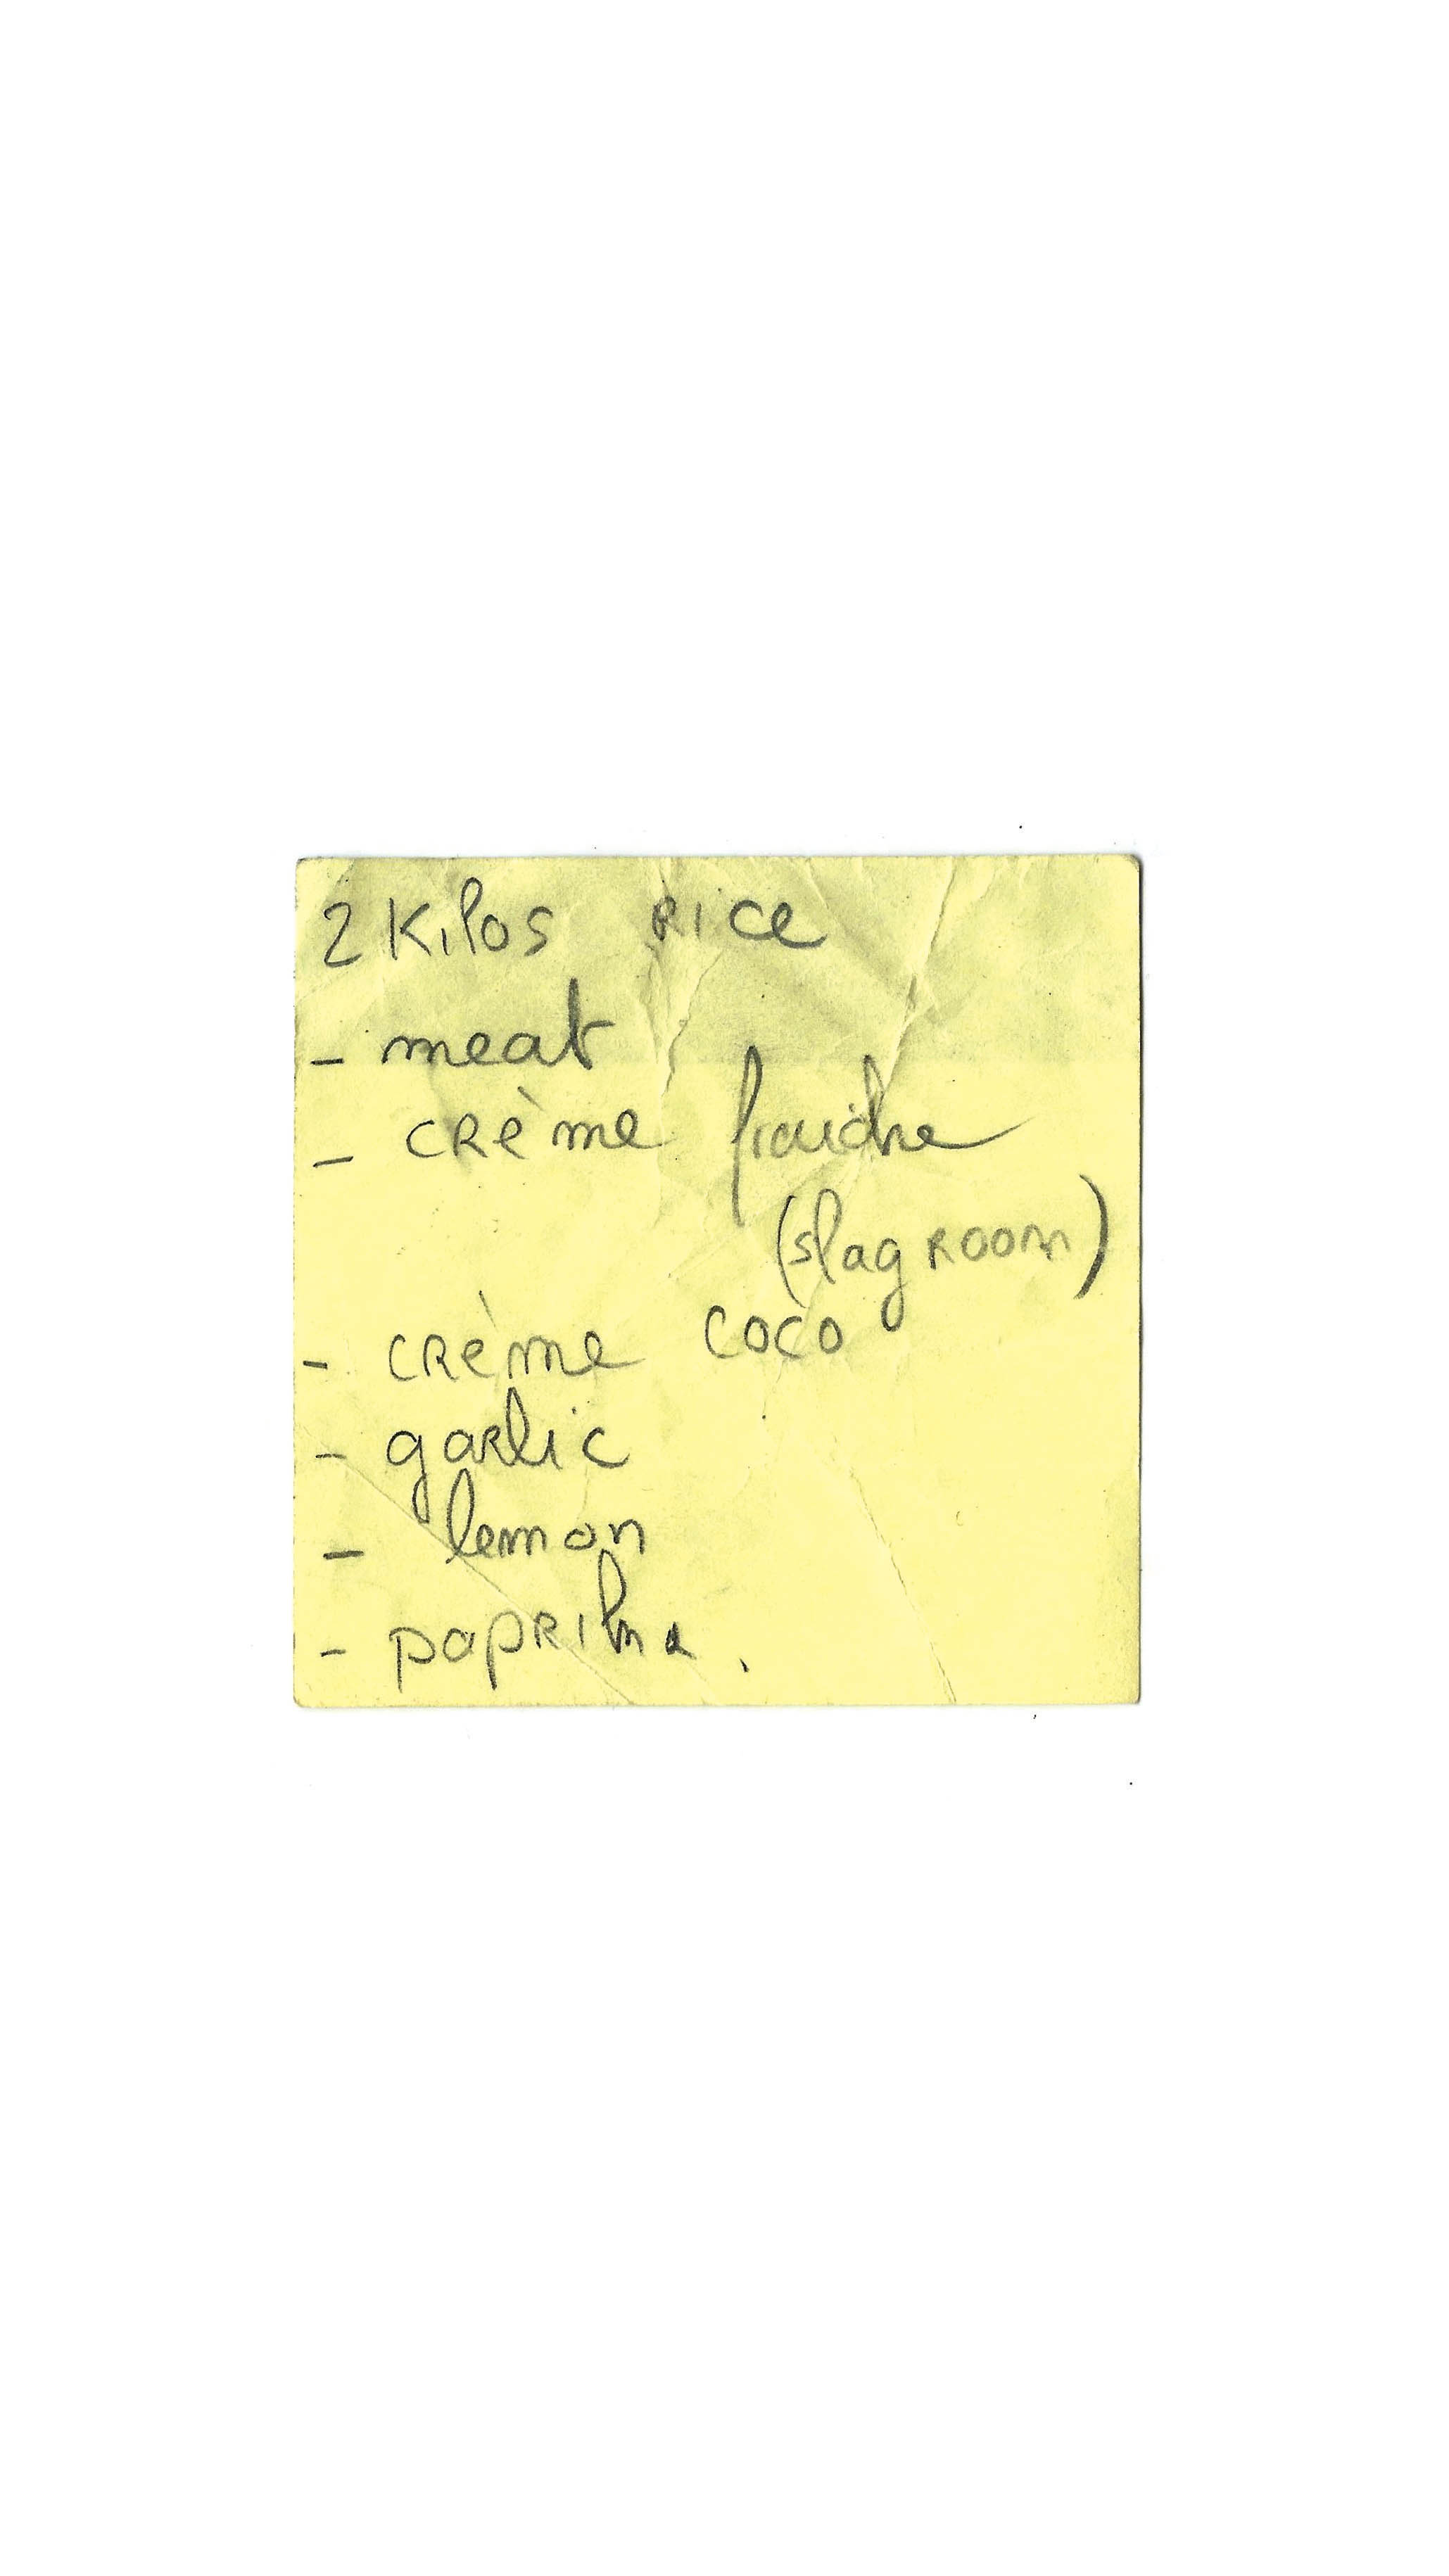 2 Kilos RICE
- meat
- CRème fraiche
(slagroom)
- CRème coco
- garlic
- lemon
- papRika.